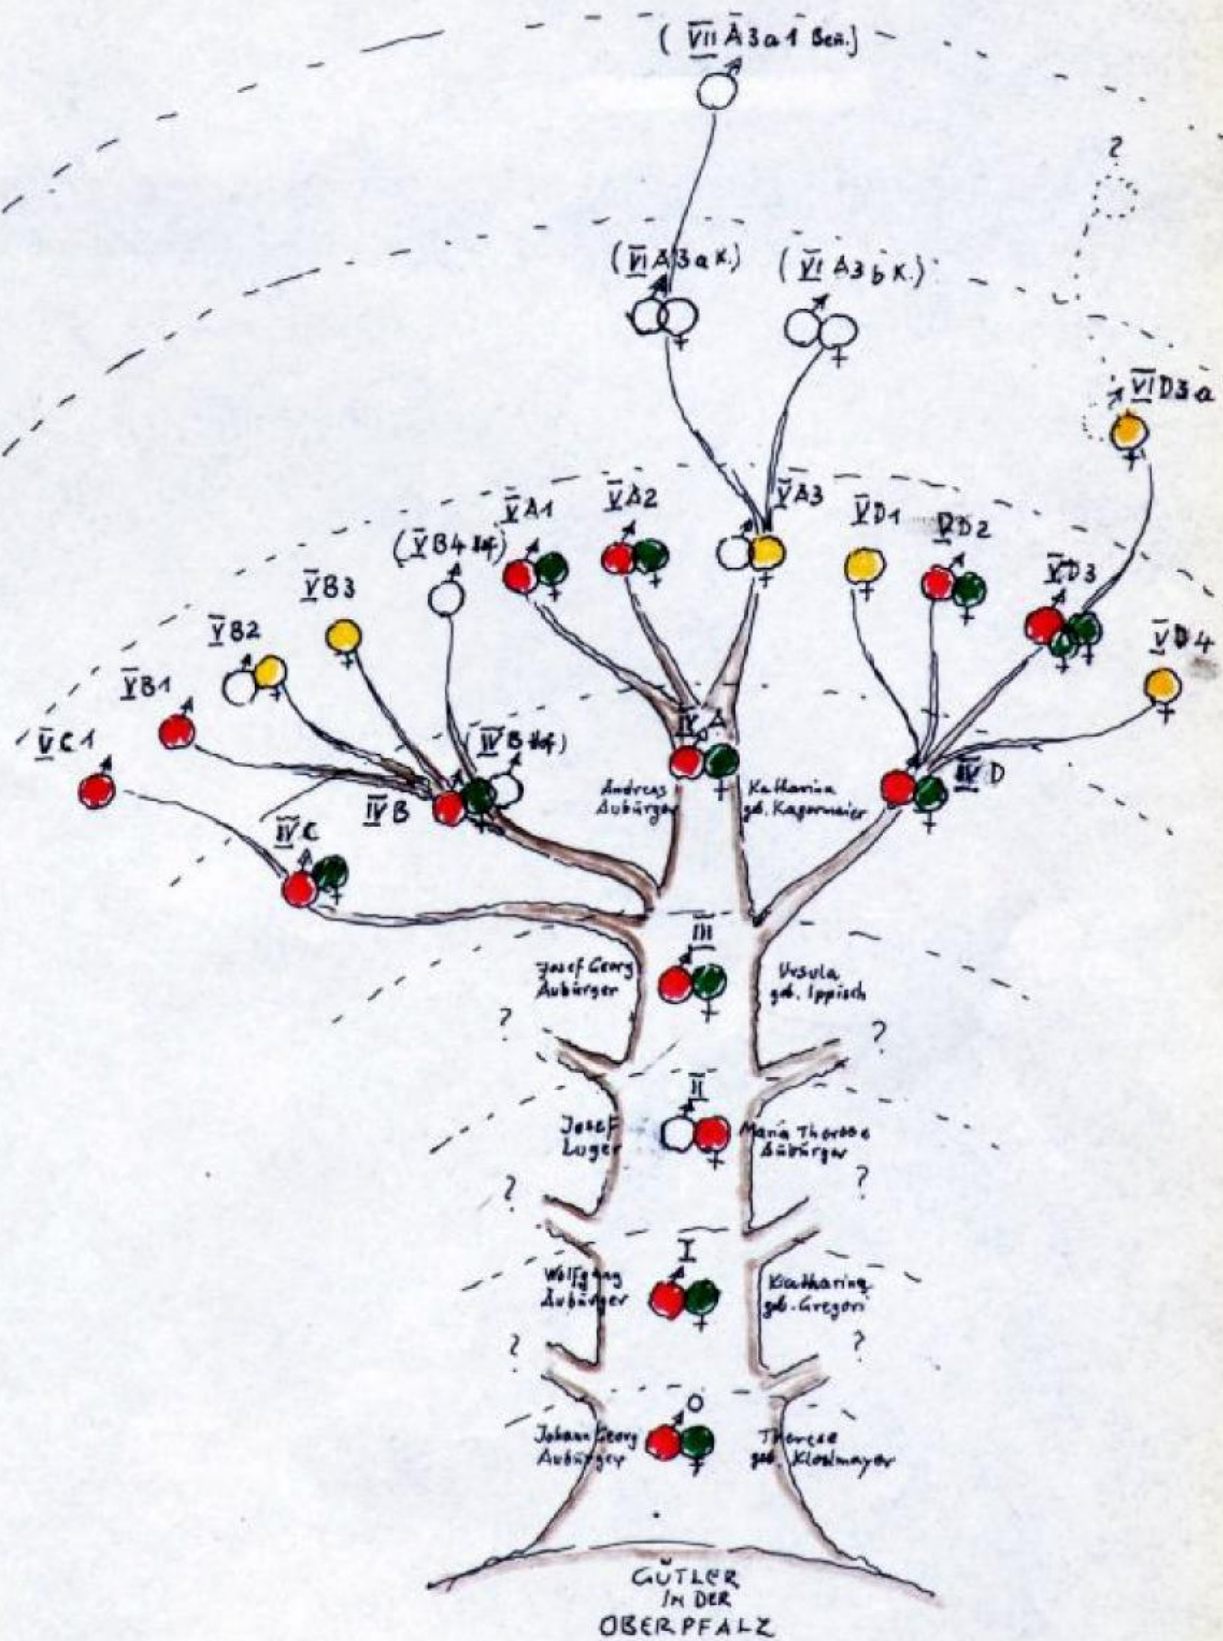 (VII A3a1 Ben.)
?
(VI A3a K.)
(VI A3b K.)
VI D3a
V A1
V A2
V A3
V D1
V D2
V D3
V D4
(V B4 Hof)
V B3
V B2
V B1
V C1
IV A
(IV B Hof)
IV B
IV C
IV D
Andreas
Aubürger
Katharina
geb. Kagermaier
III
Josef Georg
Aubürger
Ursula
geb. Ippisch
?
?
II
Josef
Luger
Maria Therese
Aubürger
?
?
I
Wolfgang
Aubürger
Katharina
geb. Gregori
?
?
O
Johann Georg
Aubürger
Therese
geb.
GÜTLER
IN DER
OBERPFALZ